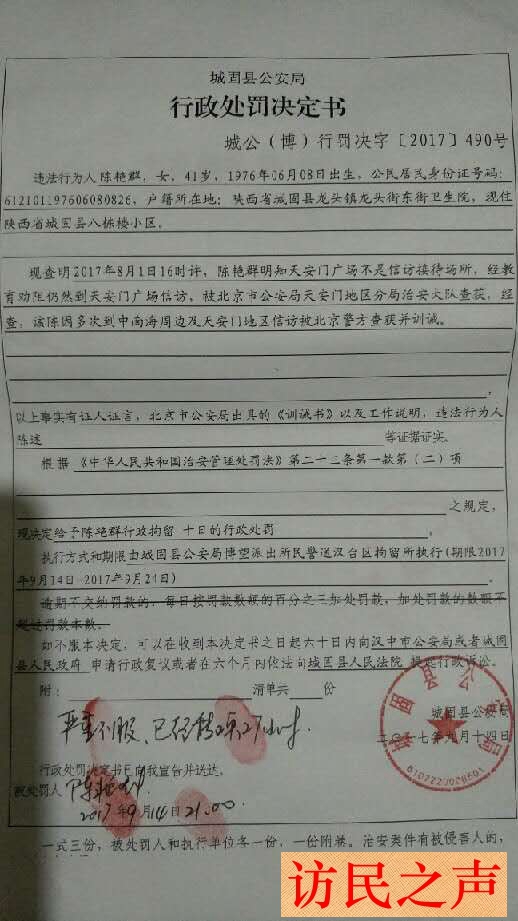 城固县公安局
行政处罚决定书
城公（博）行罚决字〔2017〕490号
违法行为人陈艳群，女，41岁，1976年06月08日出生，公民居民身份证号码：
612101197606080826，户籍所在地：陕西省城固县龙头镇龙头街东街卫生院，现住
陕西省城固县八栋楼小区。
现查明2017年8月1日16时许，陈艳群明知天安门广场不是信访接待场所，经教
育劝阻仍然到天安门广场信访，被北京市公安局天安门地区分局治安大队查获，经
查：该陈因多次到中南海周边及天安门地区信访被北京警方查获并训诫。
以上事实有证人证言，北京市公安局出具的《训诫书》以及工作说明，违法行为人
陈述 等证据证实。
根据 《中华人民共和国治安管理处罚法》第二十三条第一款第（二）项
之规定，
现决定给予陈艳群行政拘留 十日的行政处罚
执行方式和期限由城固县公安局博望派出所民警送汉台区拘留所执行(期限2017
年9月14日-2017年9月24日)
逾期不交纳罚款的，每日按罚款数额的百分之三加处罚款，加处罚款的数额不
超过罚款本数。
如不服本决定，可以在收到本决定书之日起六十日内向汉中市公安局或者城固
县人民政府 申请行政复议或者在六个月内依法向城固县人民法院 提起行政诉讼。
附： 清单共 份
城固县公安局
二〇一七年九月十四日
严重不服，已经 27小时
行政处罚决定书已向我宣告并送达。
被处罚人 陈艳群
2017年9月14日21:00
一式三份，被处罚人和执行单位各一份，一份附卷。治安案件有被侵害人的，
访民之声